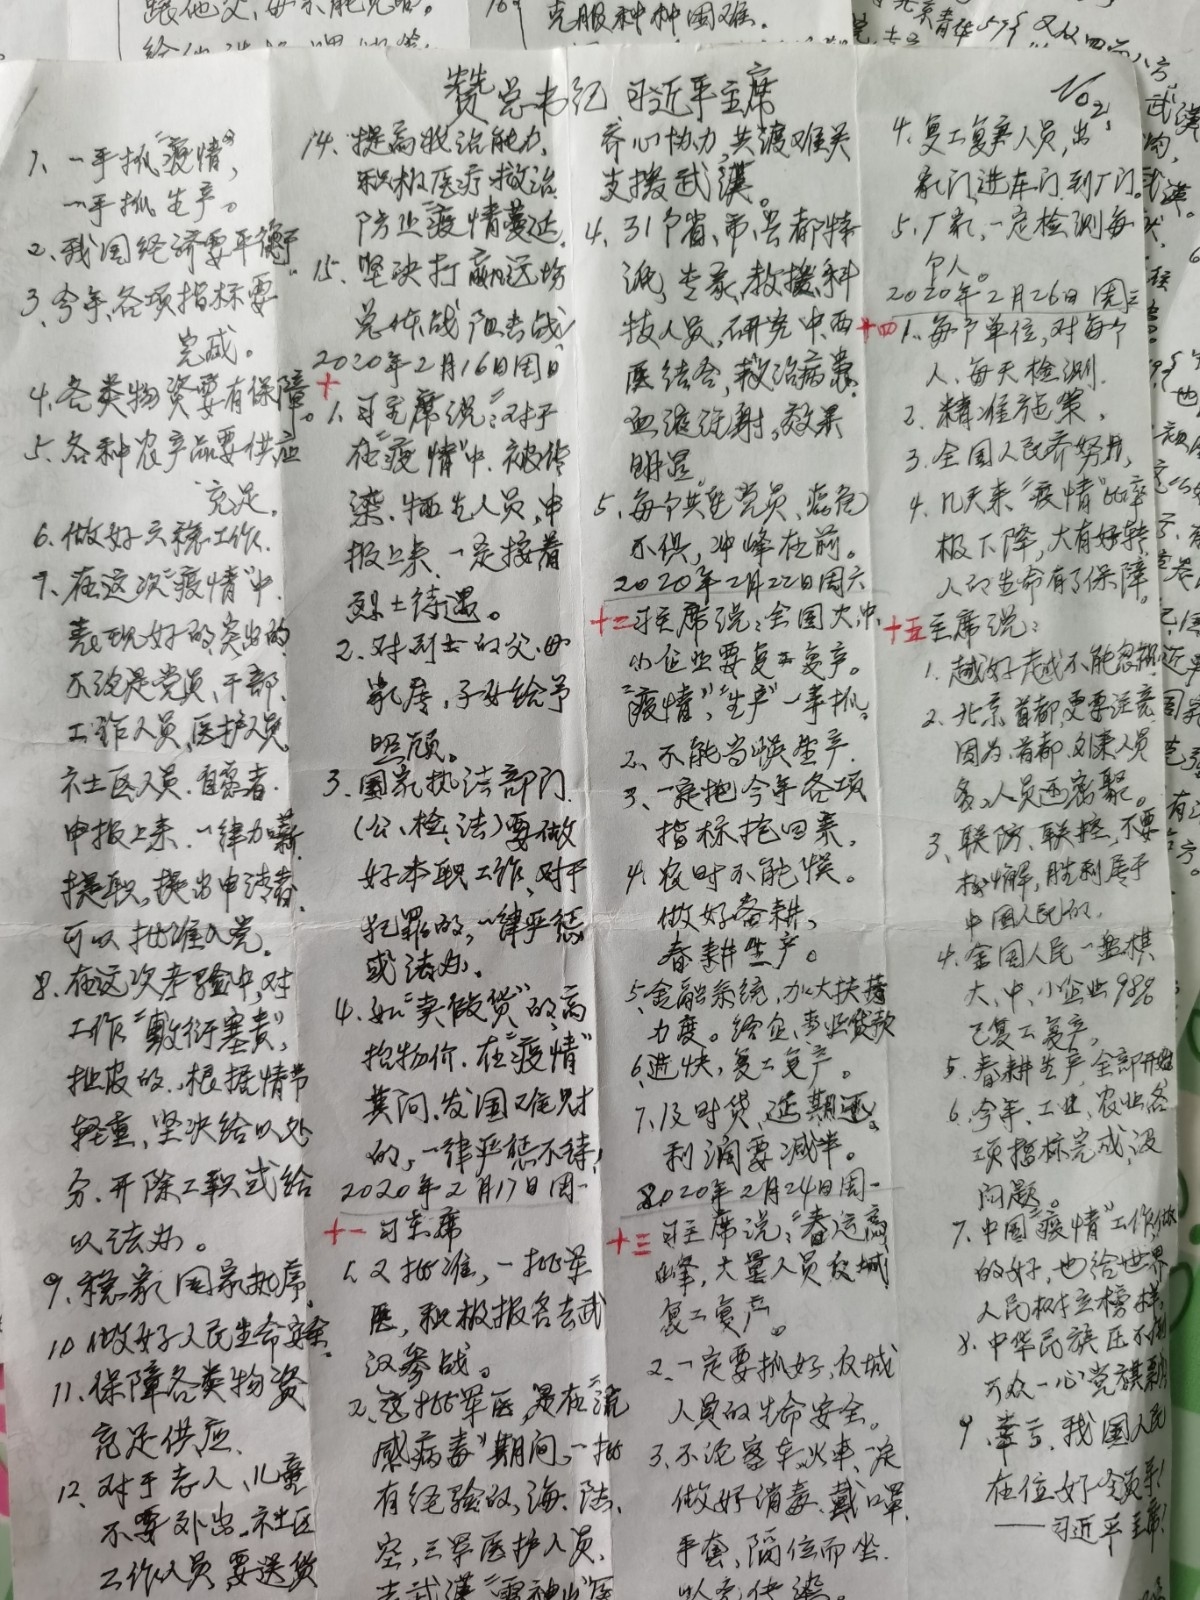 赞总书记习近平主席
No2
1、一手抓"疫情",
一手抓生产。
2、我国经济要平衡
3、今年、各项指标要
完成。
4、各类物资要有保障。
5、各种农产品要供应
充足。
6、做好六稳工作.
7、在这次"疫情"中.
表现好的、突出的
不论是党员、干部、
工作人员、医护人员
社区人员.自愿者.
申报上来.一律力薪
提职,提出申请者
可以批准入党。
8、在这次考验中,对
工作"敷衍塞责",
扯皮的.根据情节
轻重、坚决给以处
分、开除工职或给
以法办。
9、稳家国家执序.
10、做好人民生命安全.
11、保障各类物资
充足供应.
12、对于老人、儿童
不要外出.社区
工作人员要送货
14、提高救治能力,
积极医疗救治
防止"疫情"蔓达.
15、坚决打赢这场
总体战阻击战
2020年2月16日周日
十
1、习主席说:"对于
在"疫情"中.被传
染.牺生人员,申
报上来.一定按着
烈士待遇。
2、对烈士的父、母
、子女给予
照顾。
3、国家执法部门
(公、检、法)要做
好本职工作、对于
犯罪的,一律严惩
或法办。
4、如"卖假货"的,高
抬物价.在"疫情"
其间、发国难财
的,一律严惩不待!
2020年2月17日周一
十一 习主席
1、又批准,一批军
医,积极报名去武
汉参战。
2、这批军医,是在"流
感病毒"期间,一批
有经验的,海.陆、
空,三军医护人员,
去武漢"雷神山"医
齐心协力,共渡难关
支援武漢。
4、31个省、市、县都特
派,专家、救援、科
技人员,研究中西
医结合,救治病患.
血液注射,效果
明显。
5、每个共产党员、
不惧,冲峰在前。
2020年2月22日周六
十二 习主席说:全国大中
小企业要复工复产。
"疫情","生产"一手抓。
2、不能当误生产
3、一定把今年各项
指标抢回来,
4、农时不能误。
做好备耕,
春耕生产。
5、金融系统,加大扶持
力度。给企、事业贷款
6、进快,复工复产。
7、及时贷、延期还,
利润要减半。
2020年2月24日周一
十三 习主席说:"春运高
峰,大量人员反城
复工复产。
2、一定要抓好,反城
人员的生命安全。
3、不论客车、火车、一定
做好消毒、戴口罩
手套,隔位而坐.
以免传染。
4、复工复产人员,出
家门进车门到厂门。
5、厂家,一定检测每
个人。
2020年2月26日周三
十四 1、每个单位,对每个
人、每天检测.
2、精准施策、
3、全国人民齐努力,
4、几天来"疫情"比率
极下降,大有好转
人的生命有了保障。
十五 主席说:
1、越好越不能忽视
2、北京首都,更要注意
因为.首都.外来人员
多、人员还密聚。
3、联防、联控,不要
松懈,胜利属于
中国人民的.
4、全国人民一盘棋
大、中、小企业98%
已复工复产。
5、春耕生产,全部开始
6、今年、工业、农业各
项指标完成,没
问题。
7、中国"疫情"工作,做
的好,也给世界
人民树立榜样,
8、中华民族压不倒
万众一心党旗
9、幸亏、我国人民
在位好领导!
——习近平主席!